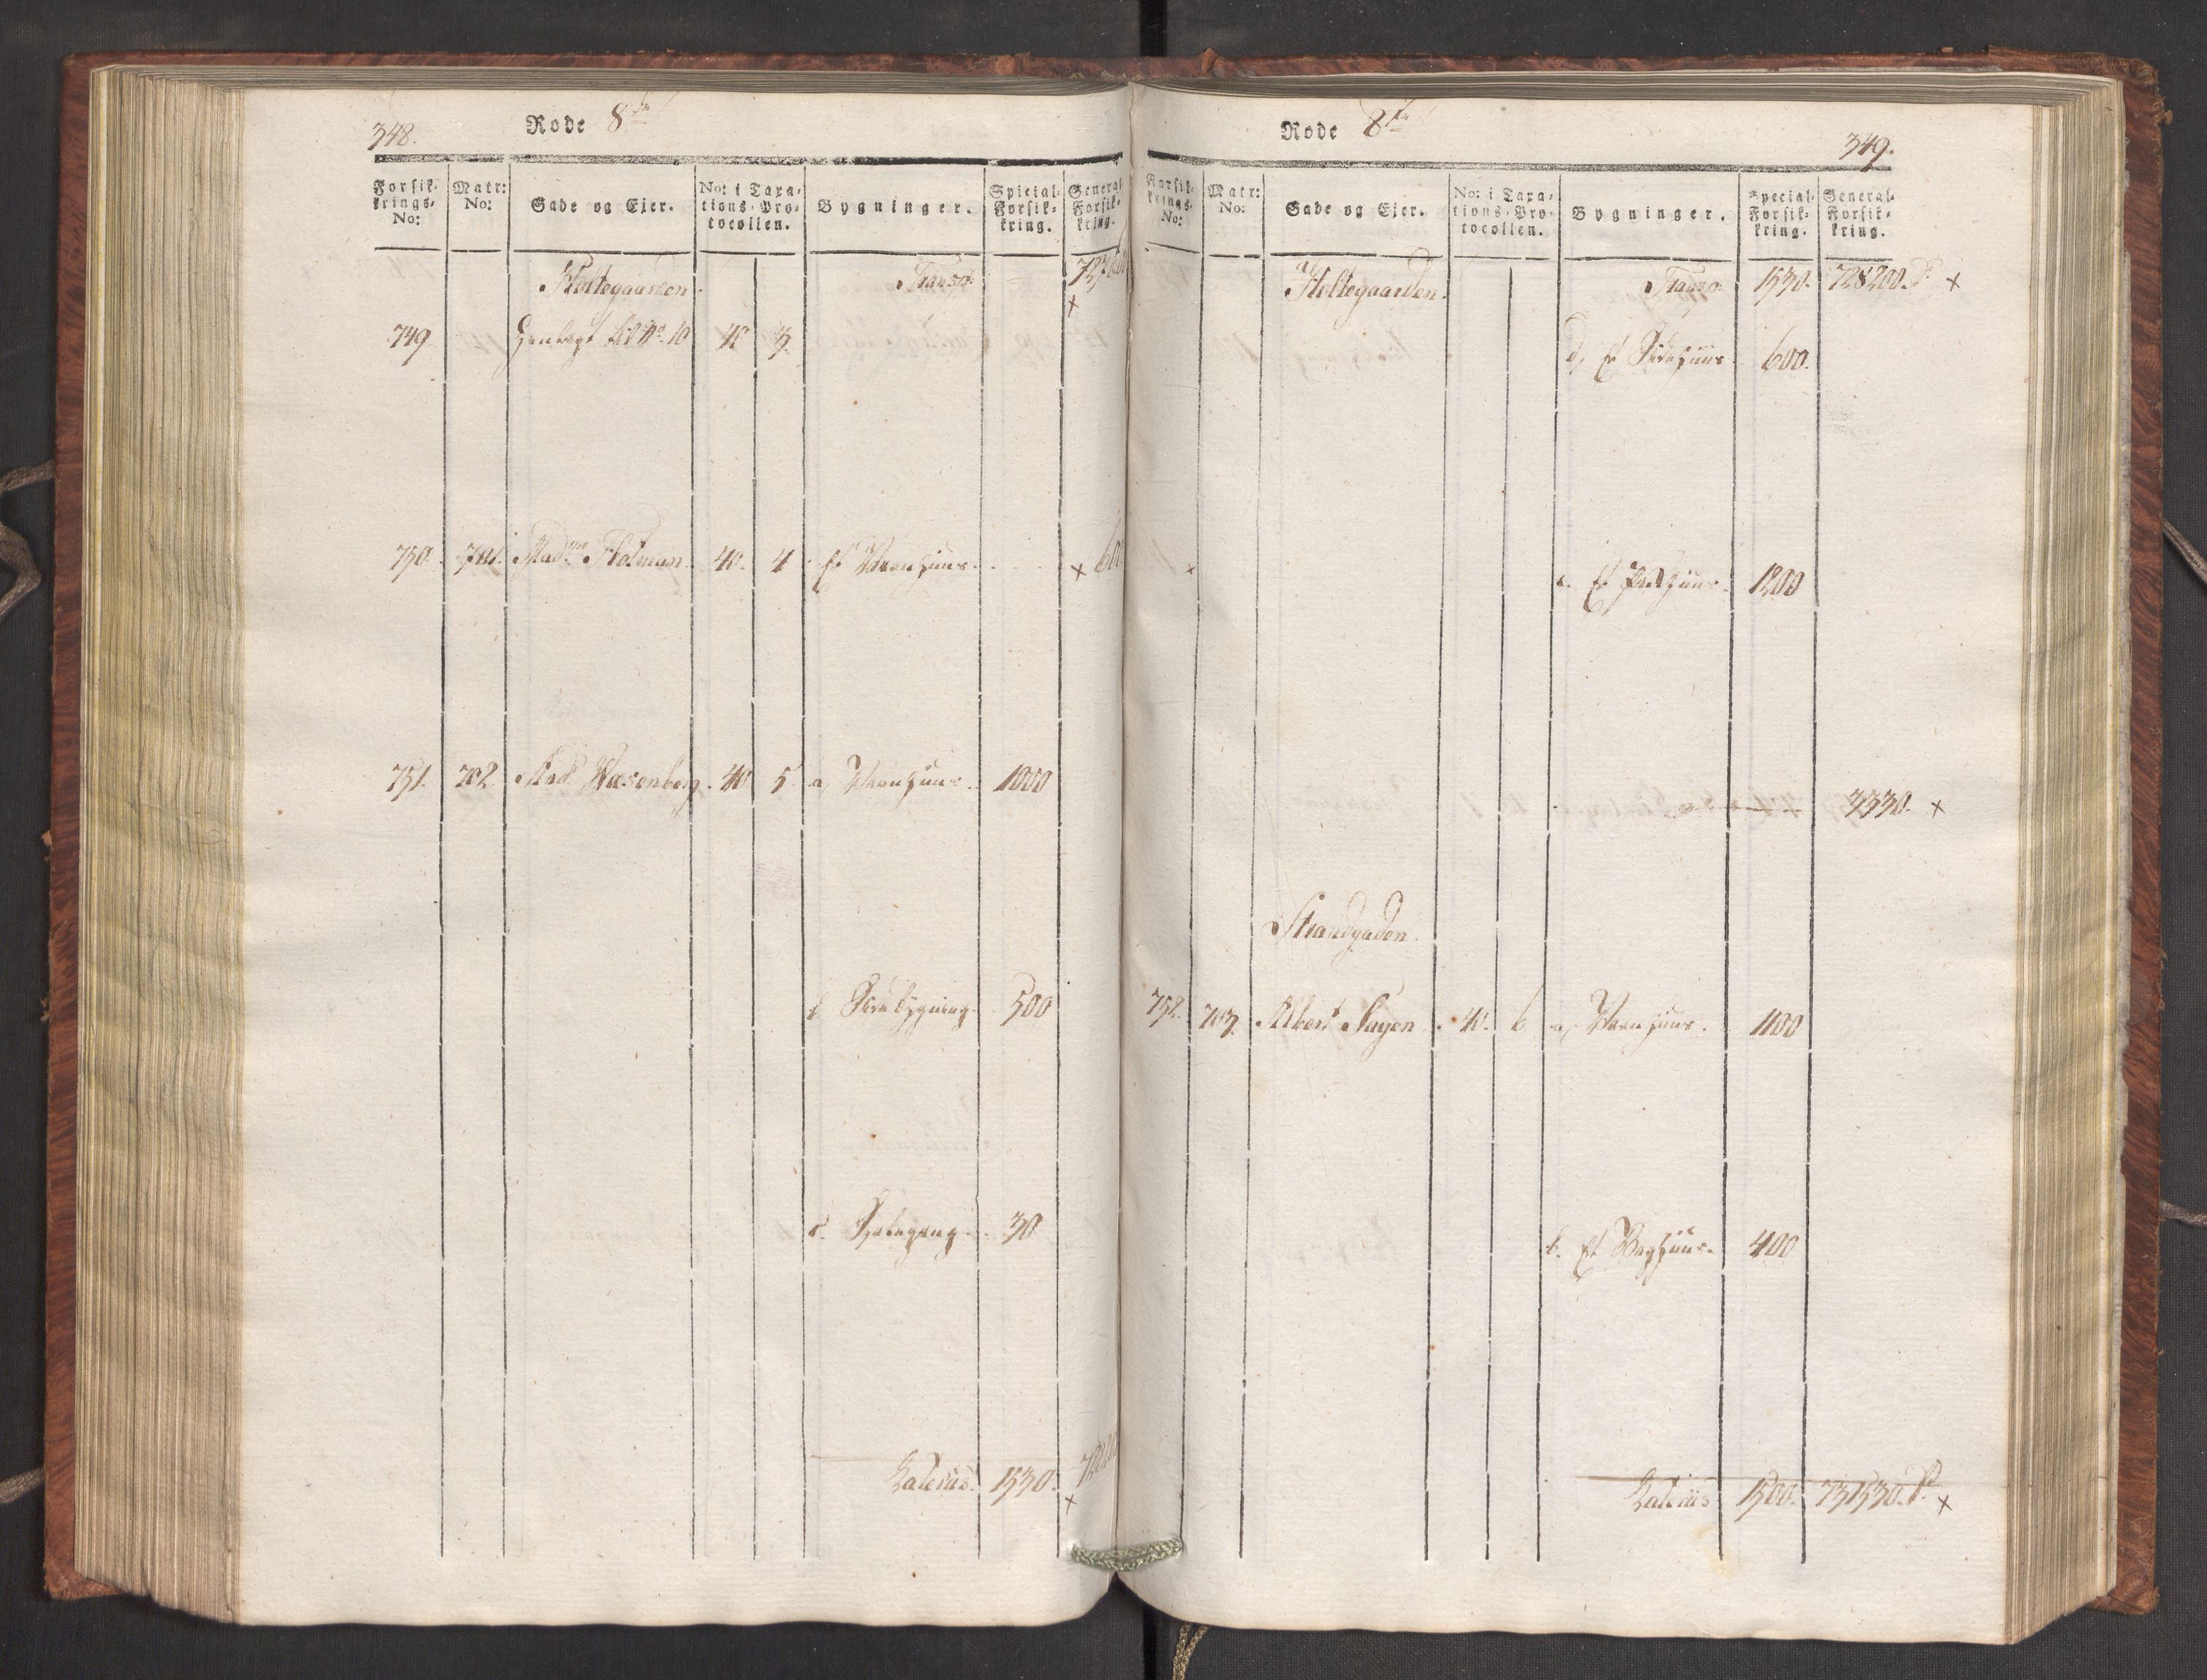 348.
Rode 8de
Forsik-
krings-
No:
Matr:
No:
Gade og Eier.
No: i Taxa-
tions-Pro-
tocollen.
Bygninger.
Special
Forsik-
kring.
General
Forsik-
kring.
Holtegaarden.
Transp:
749 Henlagt til No 10 40 3.
750. 701. Madme 40. 4 Et Vaanhuus. × 600
751. 702. Mad: Wæsenberg. 40 5. a, Vaanhuus. 1000
b. Sidebygning. 500
c. 30
Lateris. 1530.
×
Rode 8de
349.
Forsik-
krings-
No:
Matr:
No:
Gade og Eier.
No: i Taxa-
tions-Pro-
tocollen.
Bygninger.
Special-
Forsik-
kring.
General-
Forsik-
kring.
Holtegaarden.
Transp: 1530. 728200. ×
d, Et Sidehuus 600.
e. Et 1200
3330. ×
Strandgaden.
752. 703. Albert Sagen. 40. 6 a, Vaanhuus. 1100
b. Et Baghuus. 400
Lateris 1500. 731530. ×